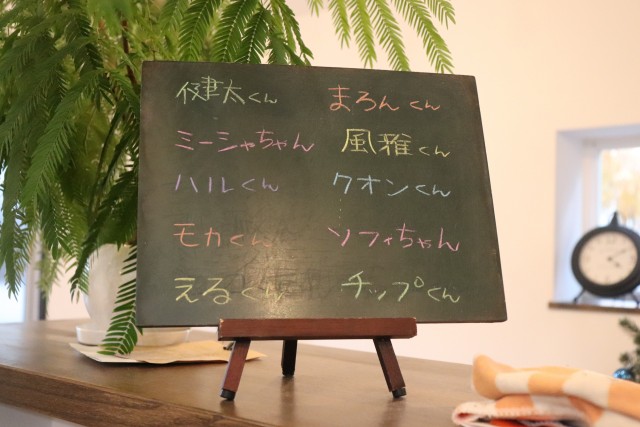 健太くん まろんくん
ミーシャちゃん 風雅くん
ハルくん クオンくん
モカくん ソフィちゃん
えるくん チップくん